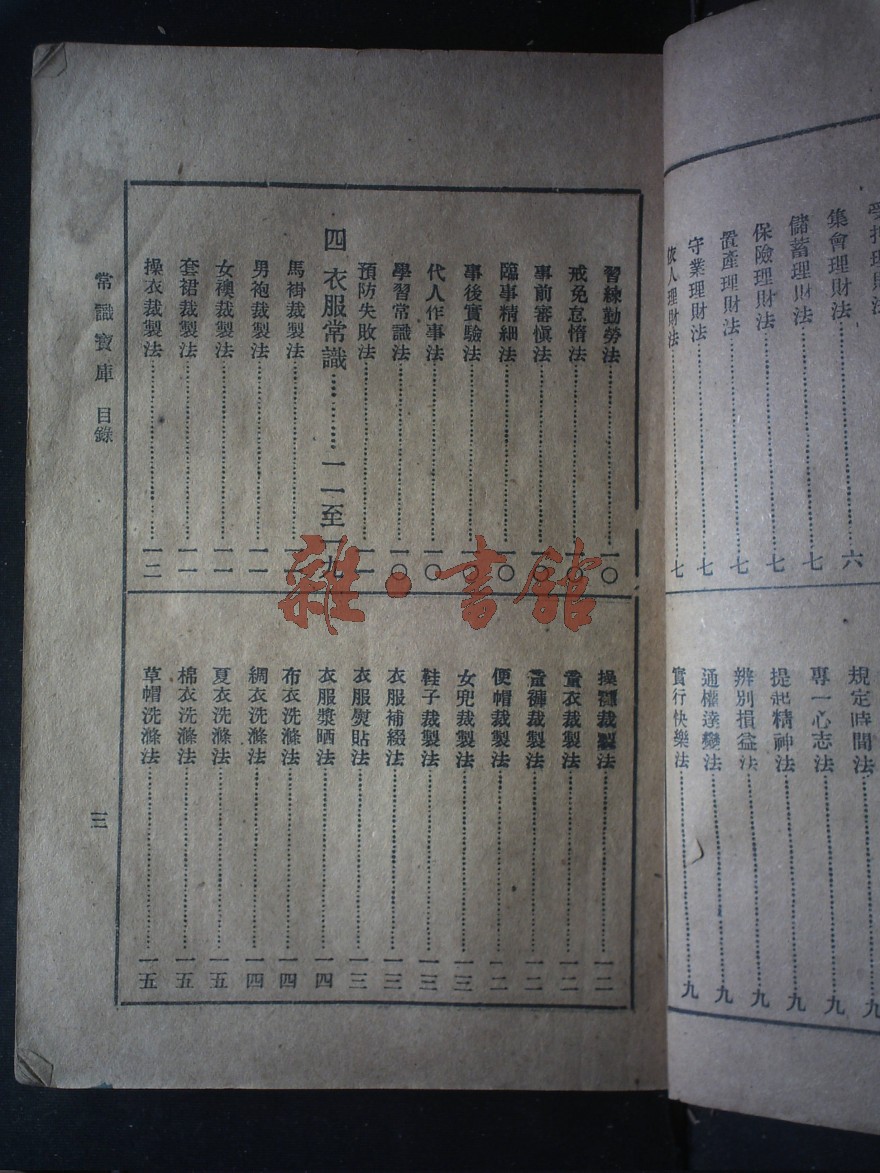 集會理財法⋯⋯六
儲蓄理財法⋯⋯七
保險理財法⋯⋯七
置產理財法⋯⋯七
守業理財法⋯⋯七
人理財法⋯⋯七
規定時間法⋯⋯九
專一心志法⋯⋯九
提起精神法⋯⋯九
辨別損益法⋯⋯九
通權達變法⋯⋯九
實行快樂法⋯⋯九
習練勤勞法⋯⋯一〇
戒免怠惰法⋯⋯一〇
事前審愼法⋯⋯一〇
臨事精細法⋯⋯一〇
事後實驗法⋯⋯一〇
代人作事法⋯⋯一〇
學習常識法⋯⋯一〇
預防失敗法⋯⋯一一
四 衣服常識⋯⋯一一至一九
馬褂裁製法⋯⋯一一
男袍裁製法⋯⋯一一
女襖裁製法⋯⋯一一
套裙裁製法⋯⋯一一
操衣裁製法⋯⋯一二
操褲裁製法⋯⋯一二
童衣裁製法⋯⋯一二
童褲裁製法⋯⋯一二
便帽裁製法⋯⋯一二
女兜裁製法⋯⋯一三
鞋子裁製法⋯⋯一三
衣服補綴法⋯⋯一三
衣服熨貼法⋯⋯一三
衣服漿晒法⋯⋯一四
布衣洗滌法⋯⋯一四
綢衣洗滌法⋯⋯一四
夏衣洗滌法⋯⋯一五
棉衣洗滌法⋯⋯一五
草帽洗滌法⋯⋯一五
常識寶庫 目錄
三
雜·書館